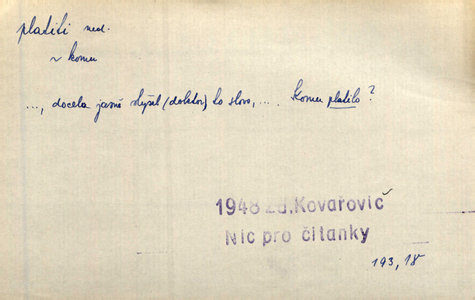 platiti ned.
~ komu
..., docela jasně slyšel (doktor) to slovo, ... Komu platilo?
1948 Zd. Kovařovič
Nic pro čítanky
193, 18